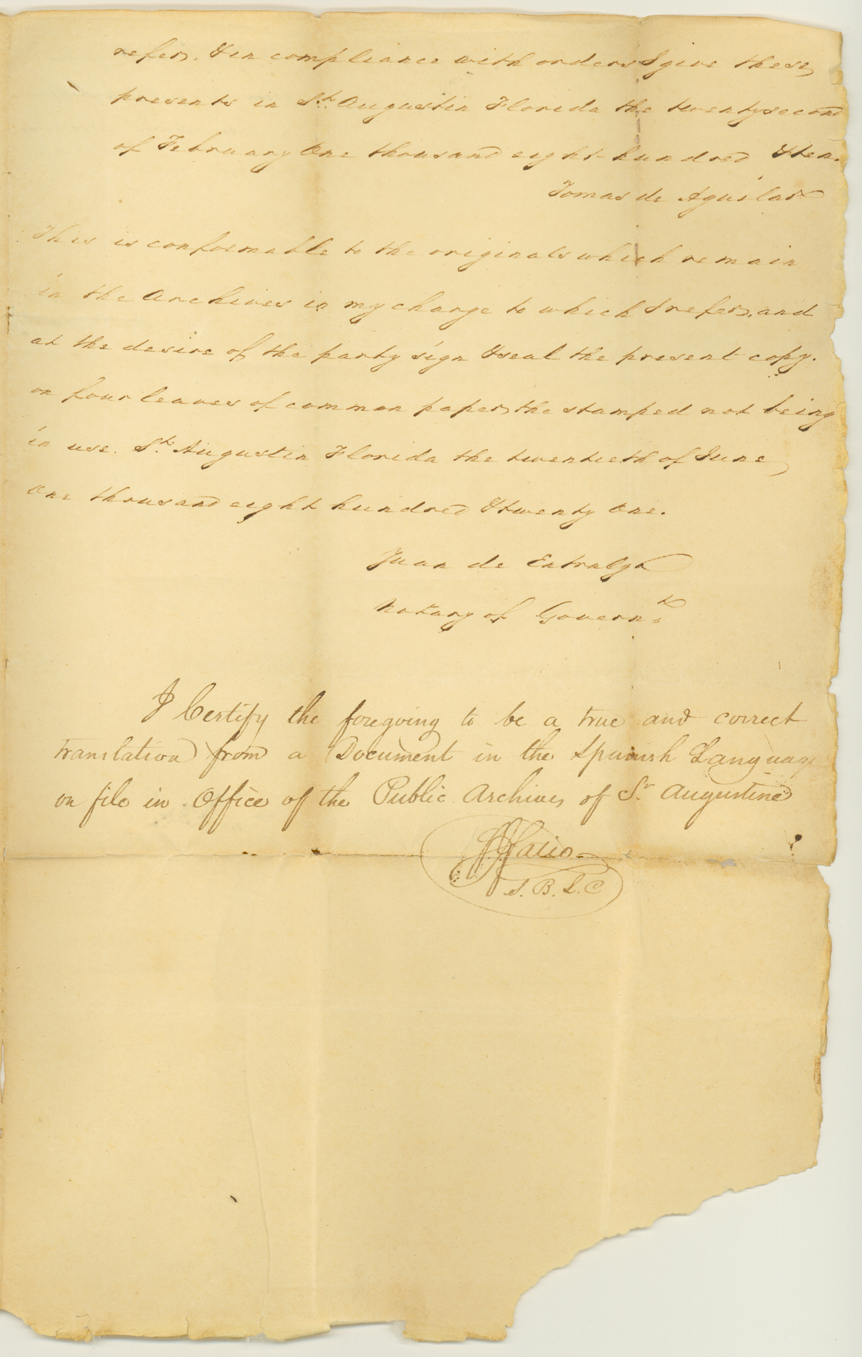 refer. & in compliance with orders I give these
presents in St. Augustin Florida the twenty second
of February One thousand eight hundred & ten.
Tomas de Aguilar
This is conformable to the originals which remain
in the Archives in my charge to which I refer, and
at the desire of the party sign & seal the present copy.
on four leaves of common paper, the stamped not being
in use. St. Augustin Florida the twentieth of June
One thousand eight hundred & twenty One.
Juan de Entralgo
Notary of Governt.
I Certify the foregoing to be a true and correct
translation from a Document in the Spanish Language
on file in Office of the Public Archives of St Augustine
S. B. L. C